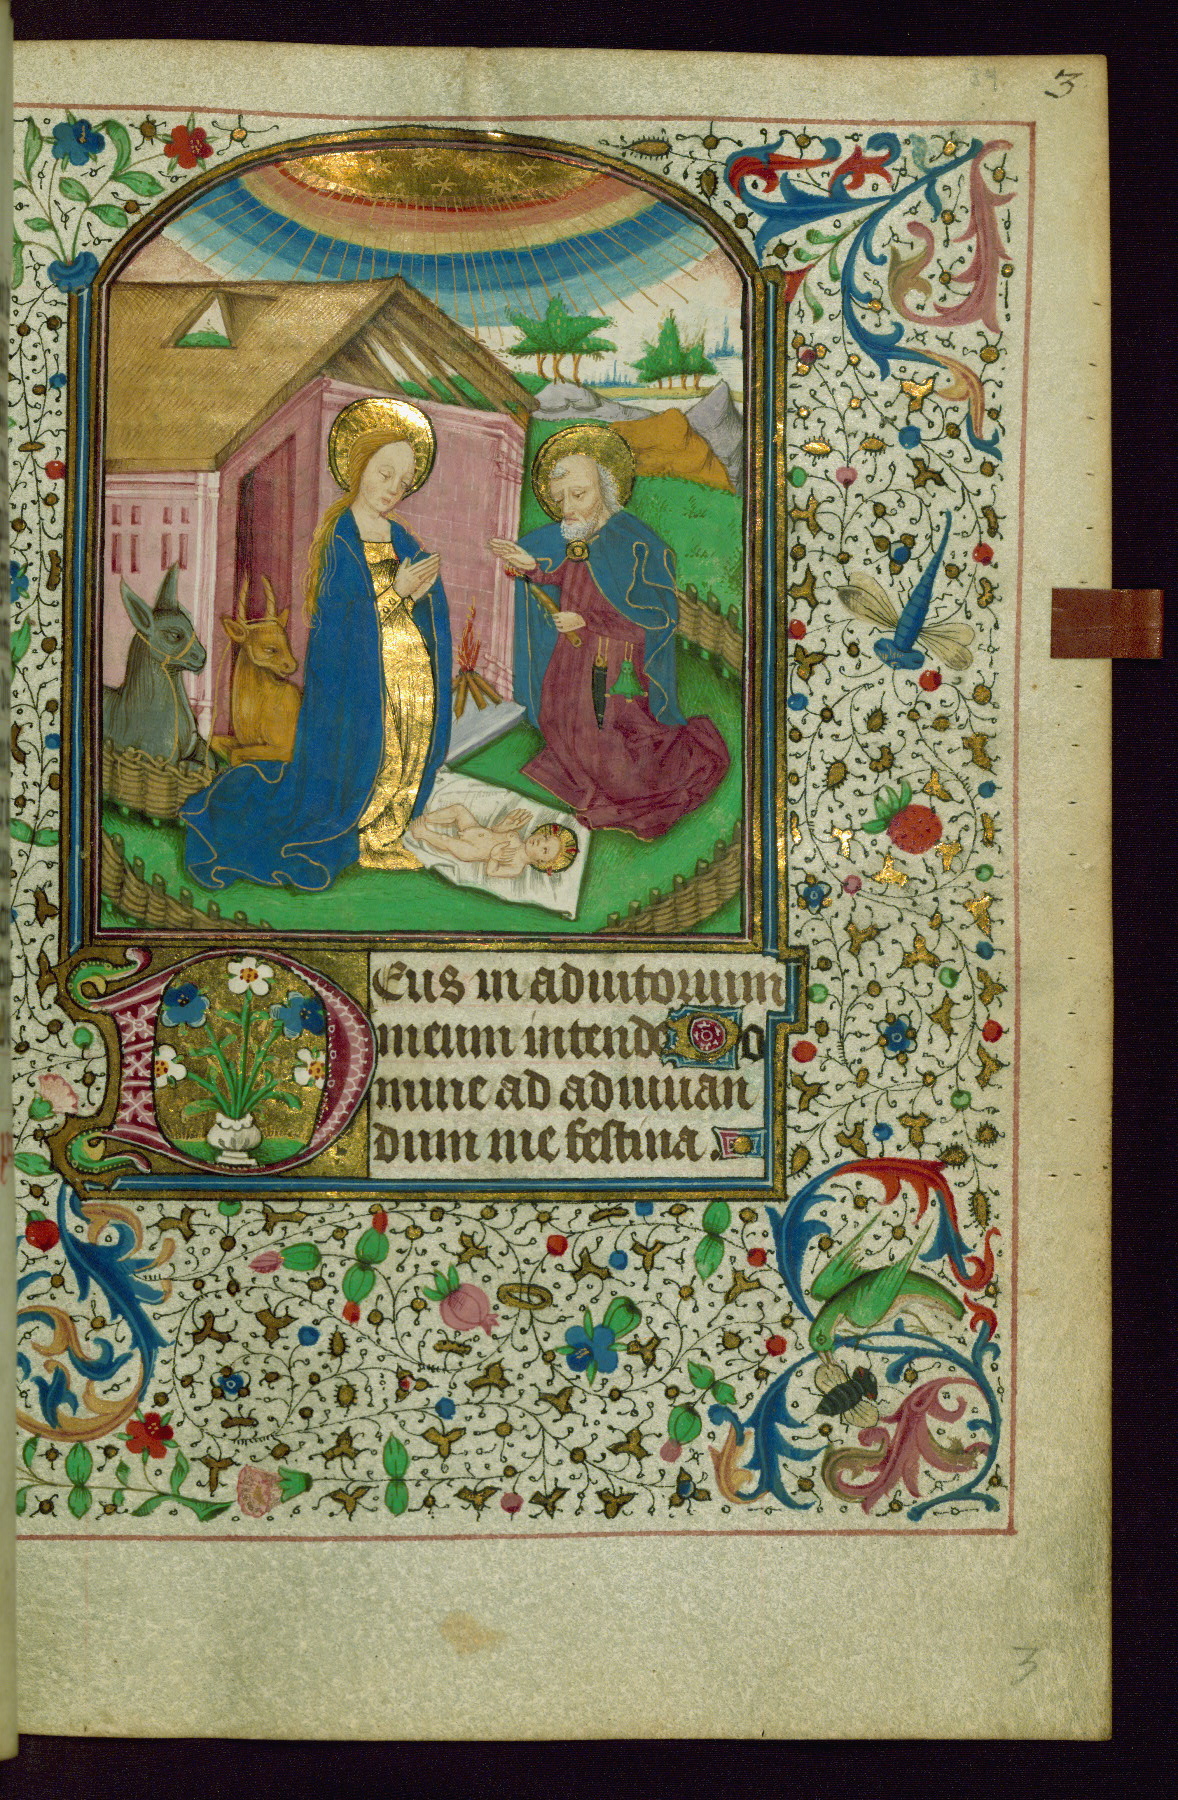 3
Deus in adiutorium
meum intende Do
mine ad adiuuan
dum me festina.
3